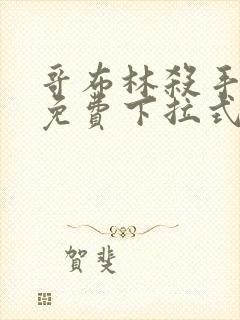 哥布林殺手
免費下拉式
賀斐